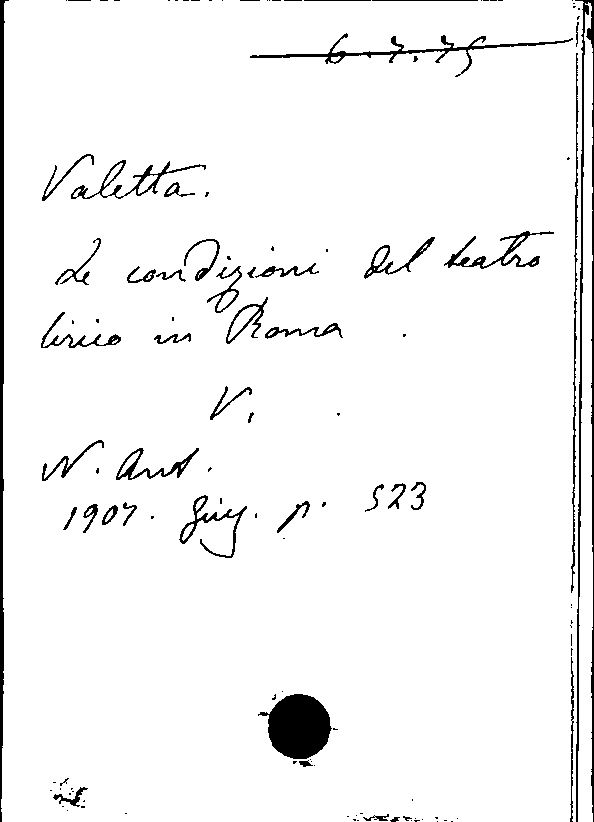 6.7.75
Valetta.
Le condizioni del teatro
lirico in Roma.
V.
N. Ant.
1907. Giug. p. 523